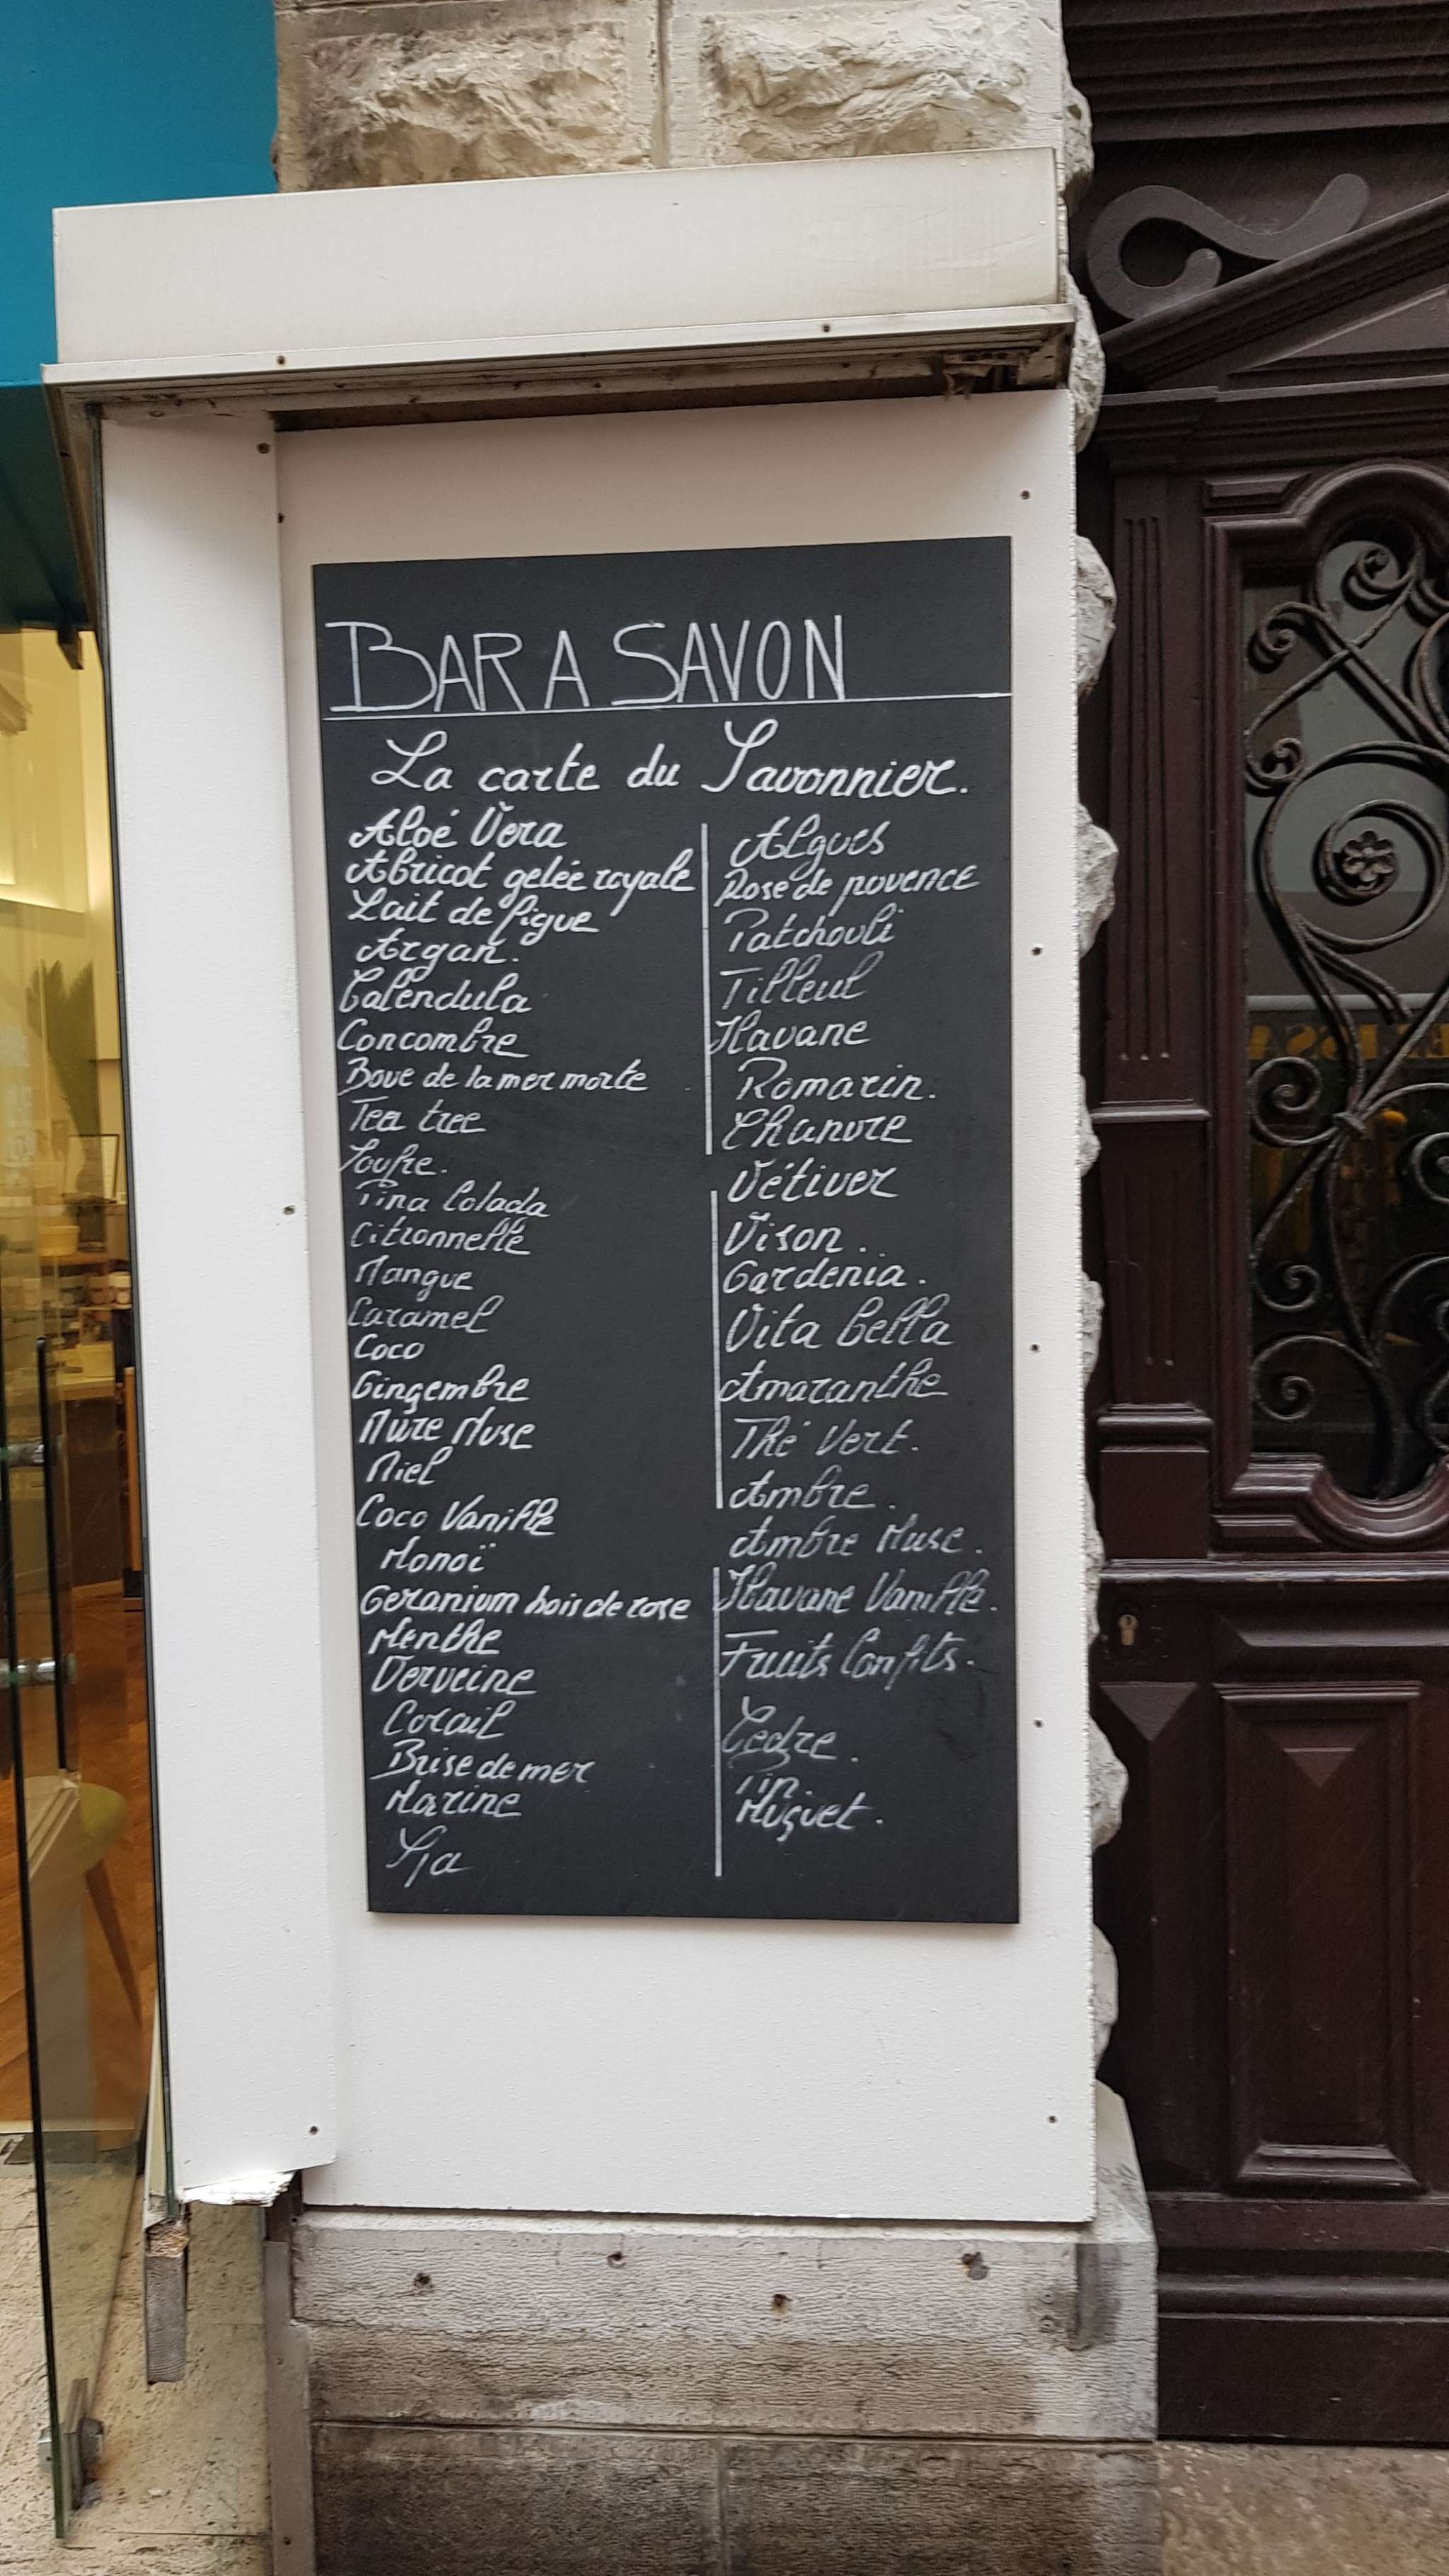 BAR A SAVON
La carte du Savonnier.
Aloé Vera
Abricot gelée royale
Lait de figue
Argan.
Calendula
Concombre
Boue de la mer morte
Tea tree
Soufre.
Pina Colada
Citronnelle
Mangue
Caramel
Coco
Gingembre
Mûre Musc
Miel
Coco Vanille
Monoï
Geranium bois de rose
Menthe
Verveine
Corail
Brise de mer
Marine
Spa
Algues
Rose de povence
Patchouli
Tilleul
Havane
Romarin.
Chanvre
Vétiver
Vison.
Gardenia.
Vita bella
Amaranthe
Thé Vert.
Ambre.
Ambre Musc.
Havane Vanille.
Fruits Confits.
Cedre.
Pin.
Muguet.